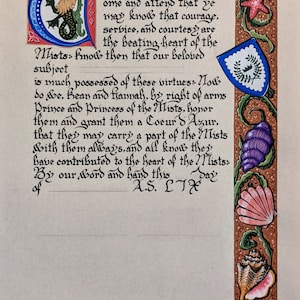 Come and attend that ye
may know that courage,
service, and courtesy are
the beating heart of the
Mists: Know then that our beloved
subject
is much possessed of these virtues: Now
do we, Bean and Hannah, by right of arms
Prince and Princess of the Mists, honor
them and grant them a Coeur d'Azur,
that they may carry a part of the Mists
with them always, and all know they
have contributed to the heart of the Mists:
By our word and hand this day
of A.S. LIX